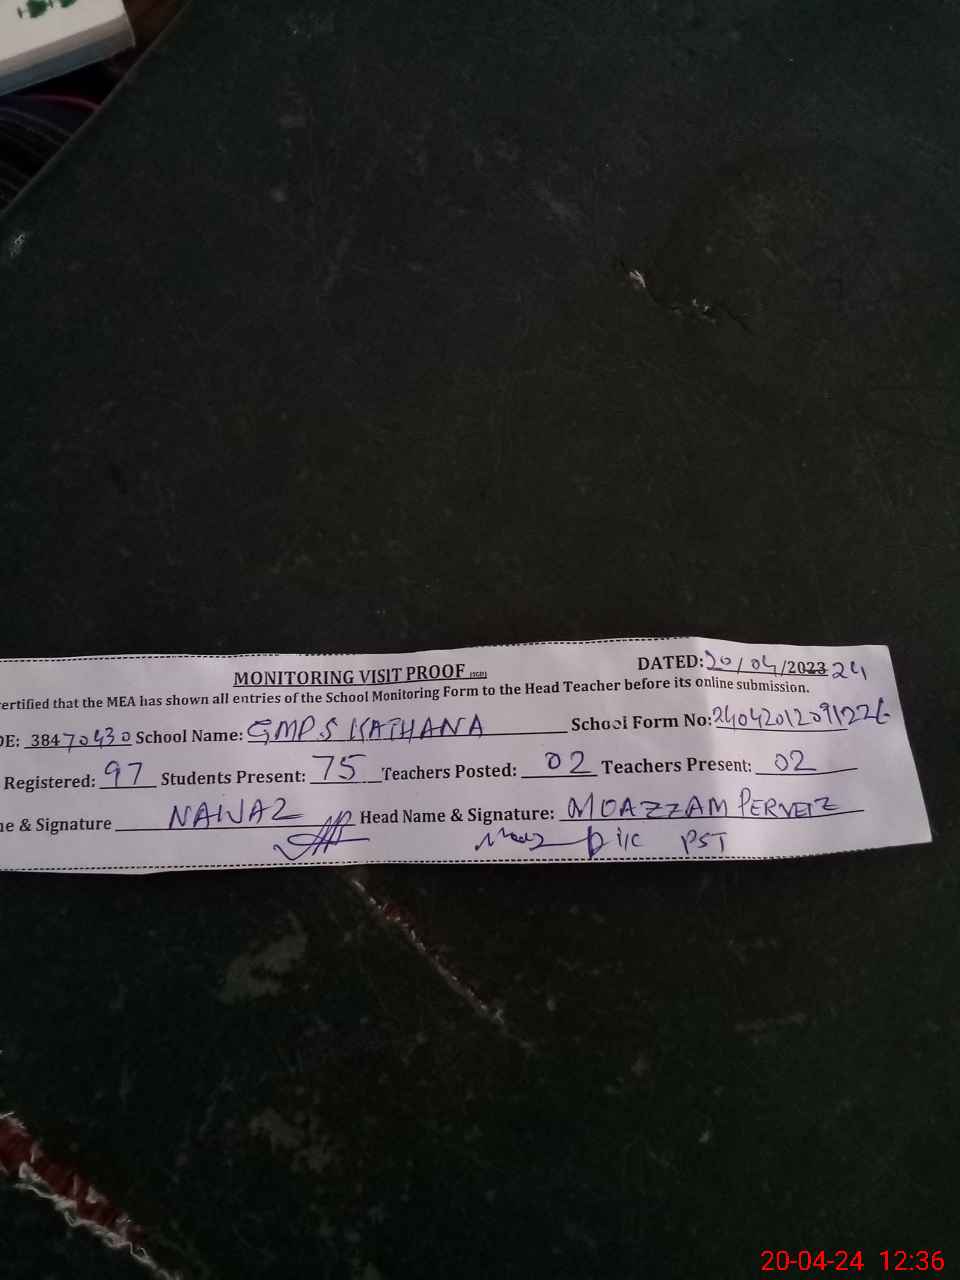 MONITORING VISIT PROOF
DATED: 20/04/2023 24
ertified that the MEA has shown all entries of the School Monitoring Form to the Head Teacher before its online submission.
DE: 38470430 School Name: GMPS KATHANA School Form No: 24042012091226
Registered: 97 Students Present: 75 Teachers Posted: 02 Teachers Present: 02
e & Signature NAWAZ Head Name & Signature: MOAZZAM PERVEIZ
i/c PST
20-04-24 12:36